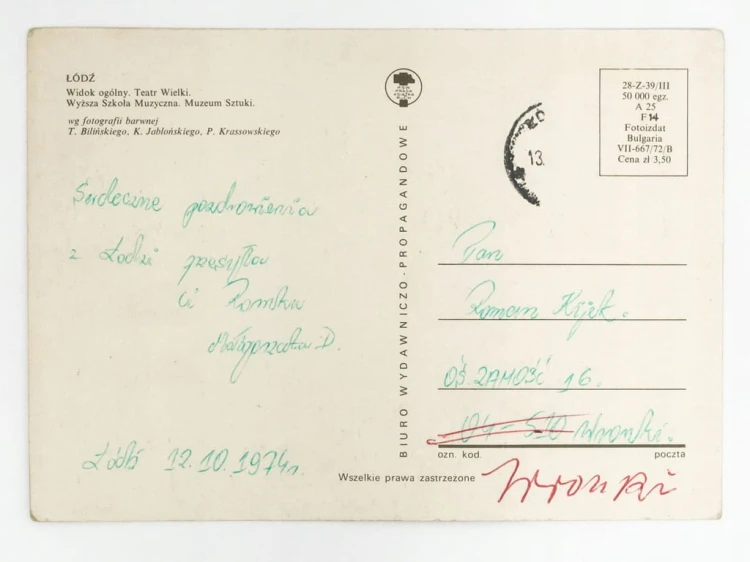 ŁÓDŹ
Widok ogólny. Teatr Wielki.
Wyższa Szkoła Muzyczna. Muzeum Sztuki.
wg fotografii barwnej
T. Bilińskiego, K. Jabłońskiego, P. Krassowskiego
Serdeczne pozdrowienia
z Łodzi przesyła
Ci Romku
Małgorzata D.
Łódź 12.10.1974r.
BIURO WYDAWNICZO-PROPAGANDOWE
13.
28-Z-39/III
50 000 egz.
A 25
F 14
Fotoizdat
Bulgaria
VII-667/72/B
Cena zł 3,50
Pan
Roman Kijek.
OŚ. ZAMOŚĆ 16.
04-510 Wronki.
ozn. kod. poczta
Wszelkie prawa zastrzeżone
Wronki